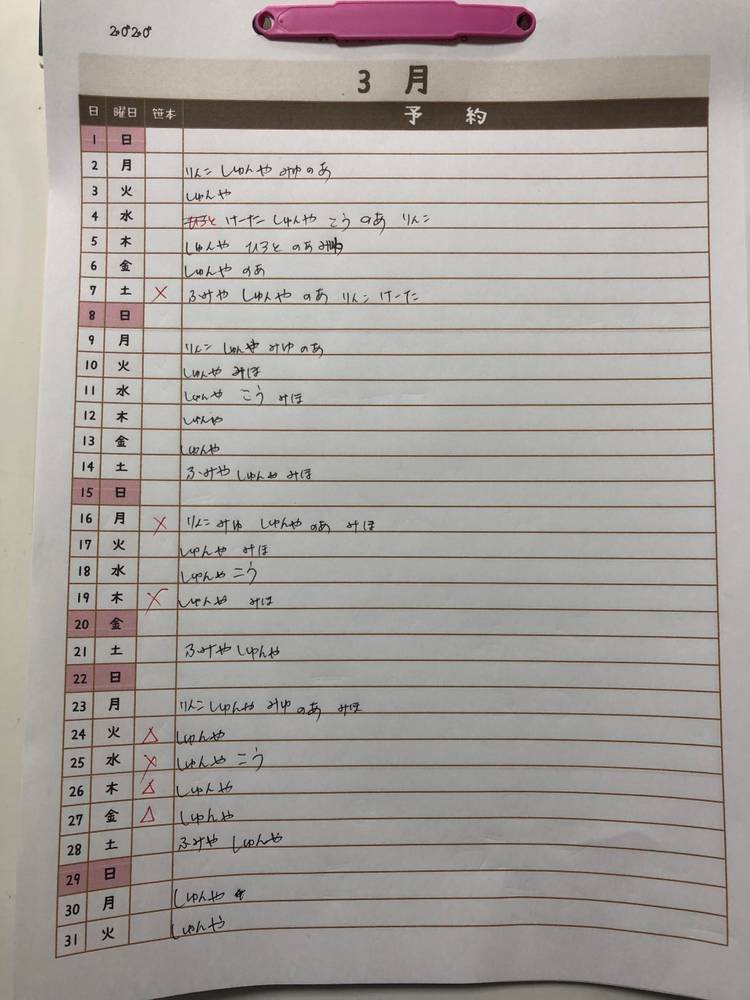 2020
3 月
日 曜日 笹本 予 約
1 日
2 月 りんこ しゅんや みゆ のあ
3 火 しゅんや
4 水 ひろと けーた しゅんや こう のあ りんこ
5 木 しゅんや ひろと のあ
6 金 しゅんや のあ
7 土 × ふみや しゅんや のあ りんこ けーた
8 日
9 月 りんこ しゅんや みゆ のあ
10 火 しゅんや みほ
11 水 しゅんや こう みほ
12 木 しゅんや
13 金 しゅんや
14 土 ふみや しゅんや みほ
15 日
16 月 × りんこ みゆ しゅんや のあ みほ
17 火 しゅんや みほ
18 水 しゅんや こう
19 木 × しゅんや みほ
20 金
21 土 ふみや しゅんや
22 日
23 月 りんこ しゅんや みゆ のあ みほ
24 火 △ しゅんや
25 水 × しゅんや こう
26 木 △ しゅんや
27 金 △ しゅんや
28 土 ふみや しゅんや
29 日
30 月 しゅんや
31 火 しゅんや